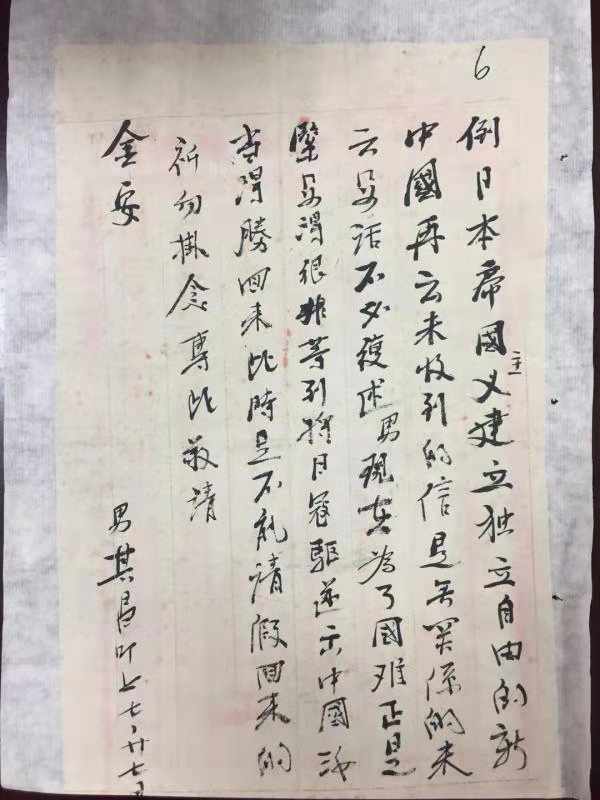 6
倒日本帝國主义建立独立自由的新
中國再云未收到的信是無関係的来
云及话不必復述男現在為了國难正是
緊要得很非等到将日寇驱逐出中國
者得勝回来此時是不能请假回来的
祈勿掛念專此敬请
金安
男其昌叩上七、廿七日